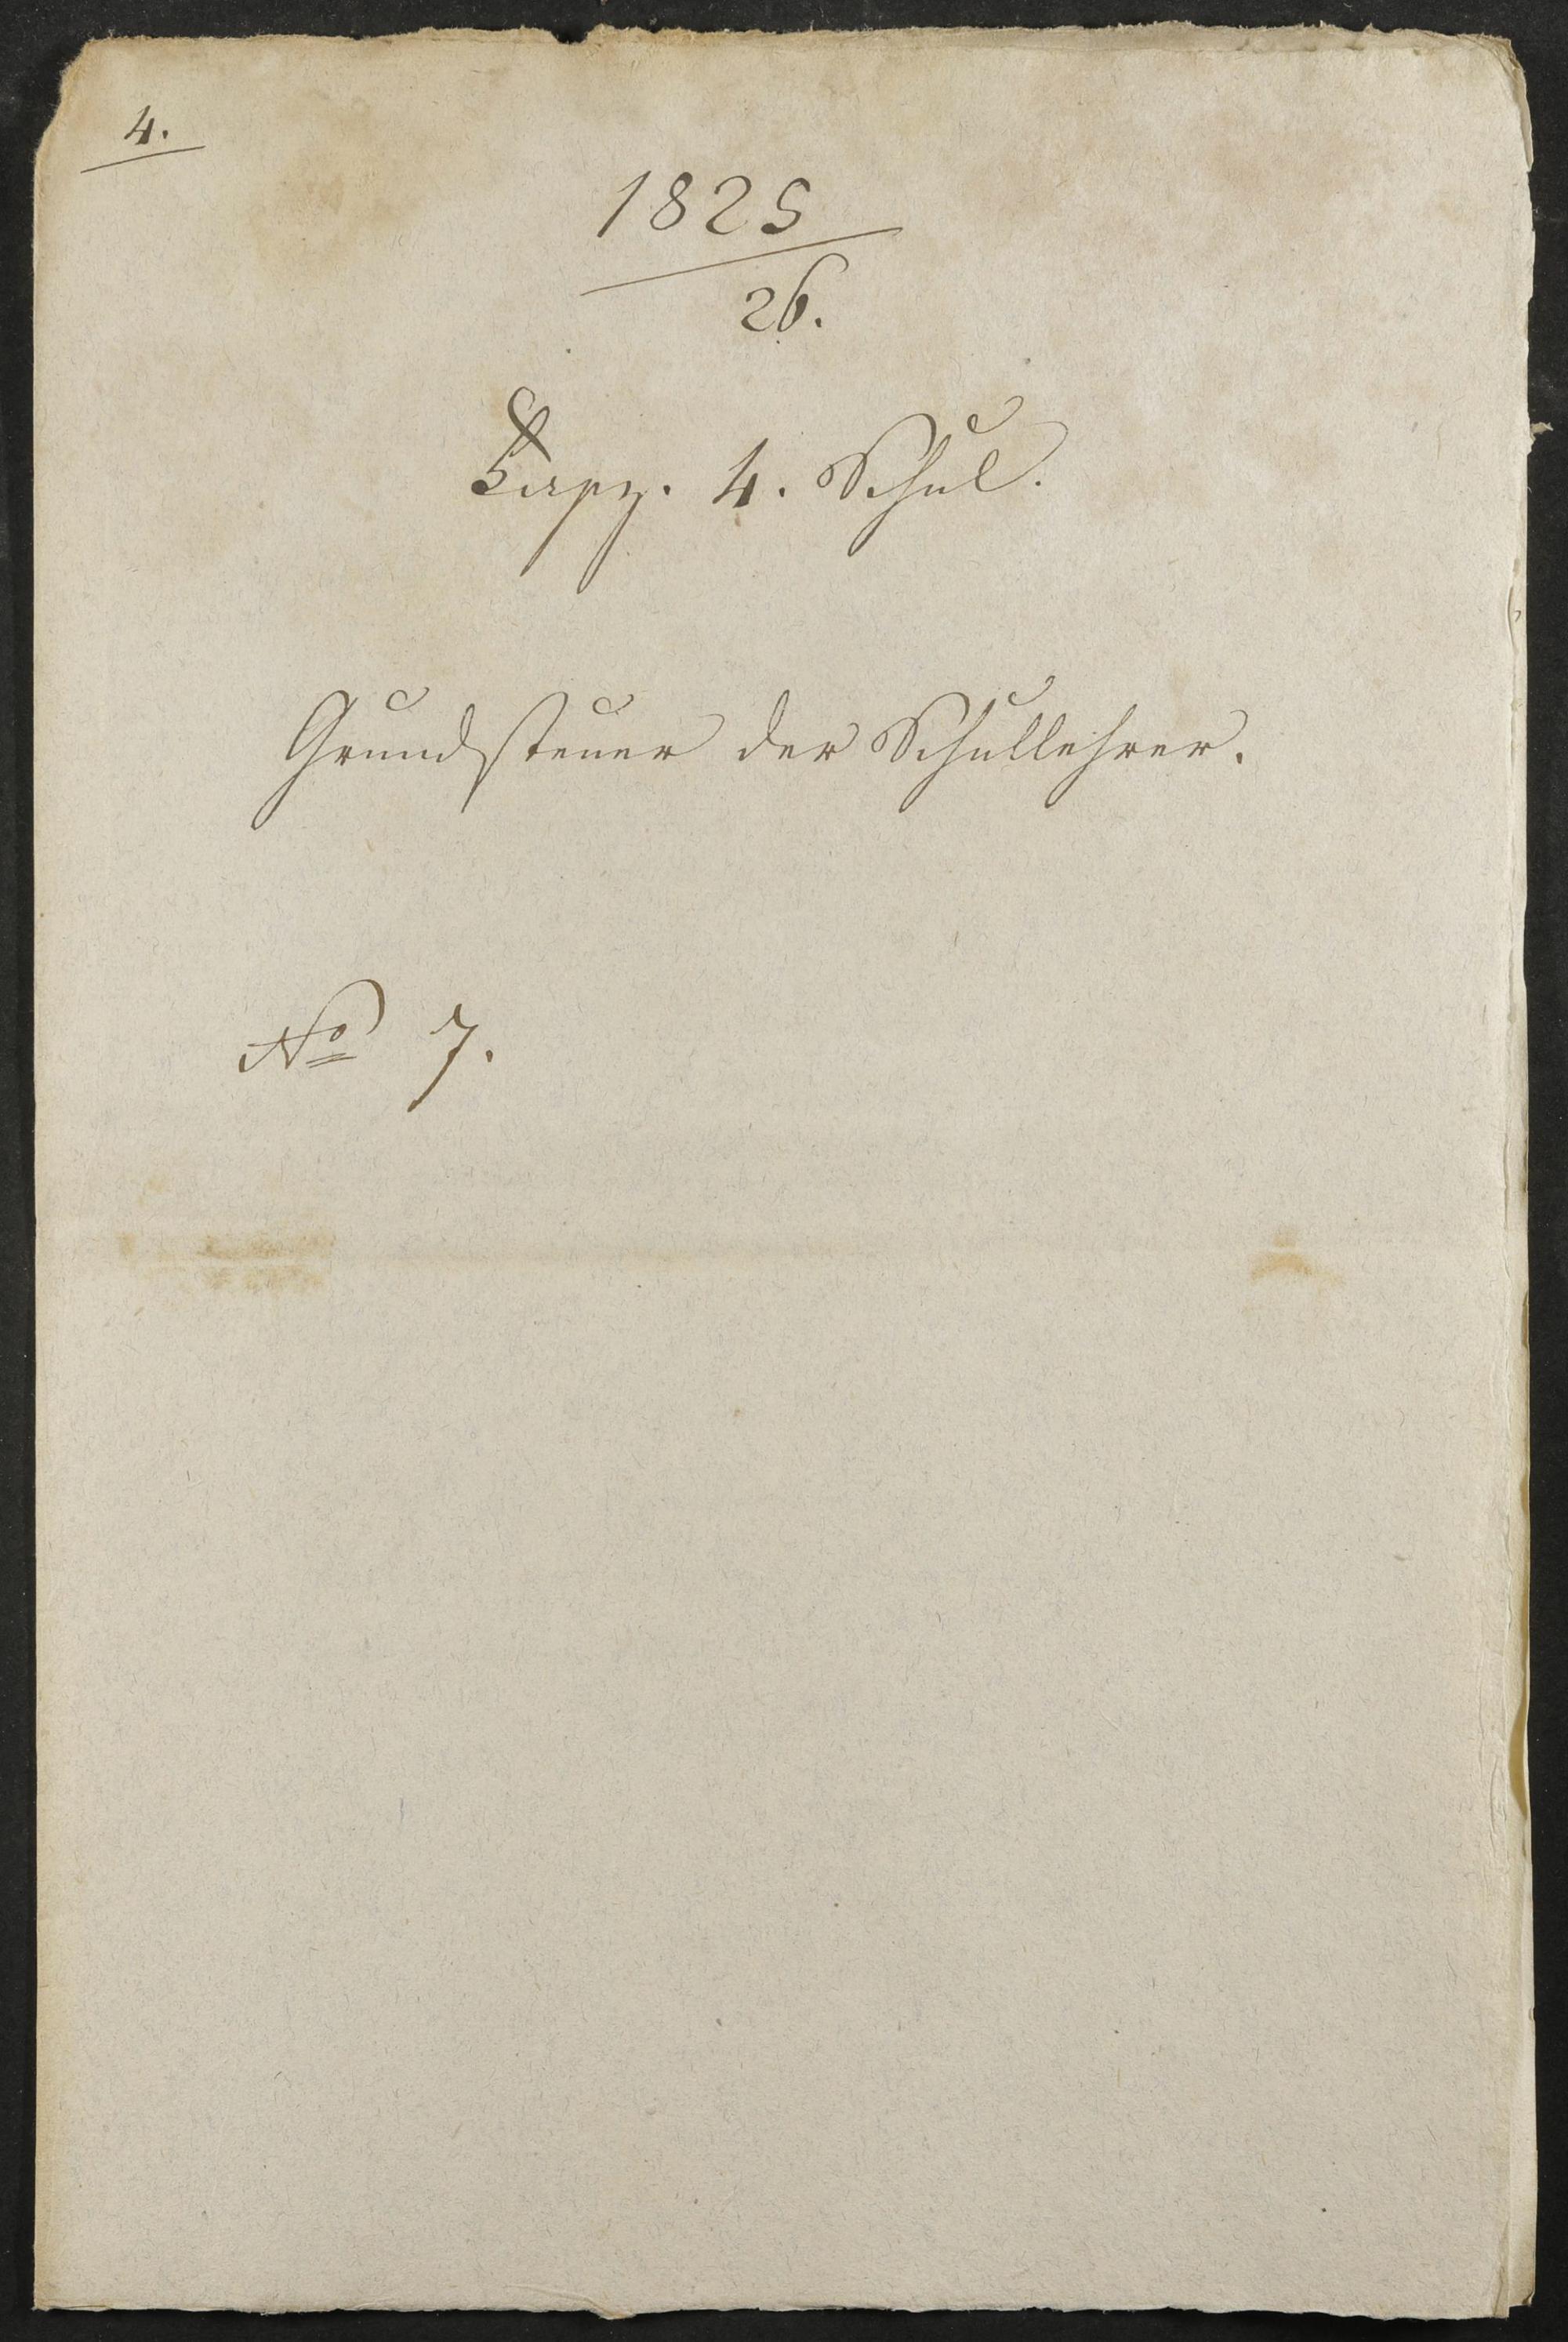 4.
1825
26.
4. Schul.
Grundsteuer der Schullehrer.
No 7.